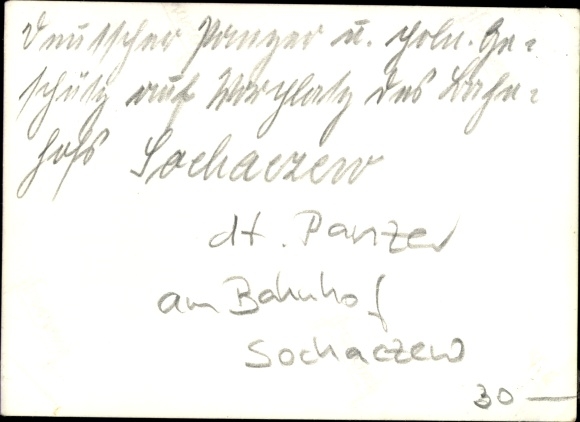 Deutscher Panzer u. poln. Ge=
schütz auf Vorplatz des Bahn=
hofs Sochaczew
dt. Panzer
am Bahnhof
Sochaczew
30 —